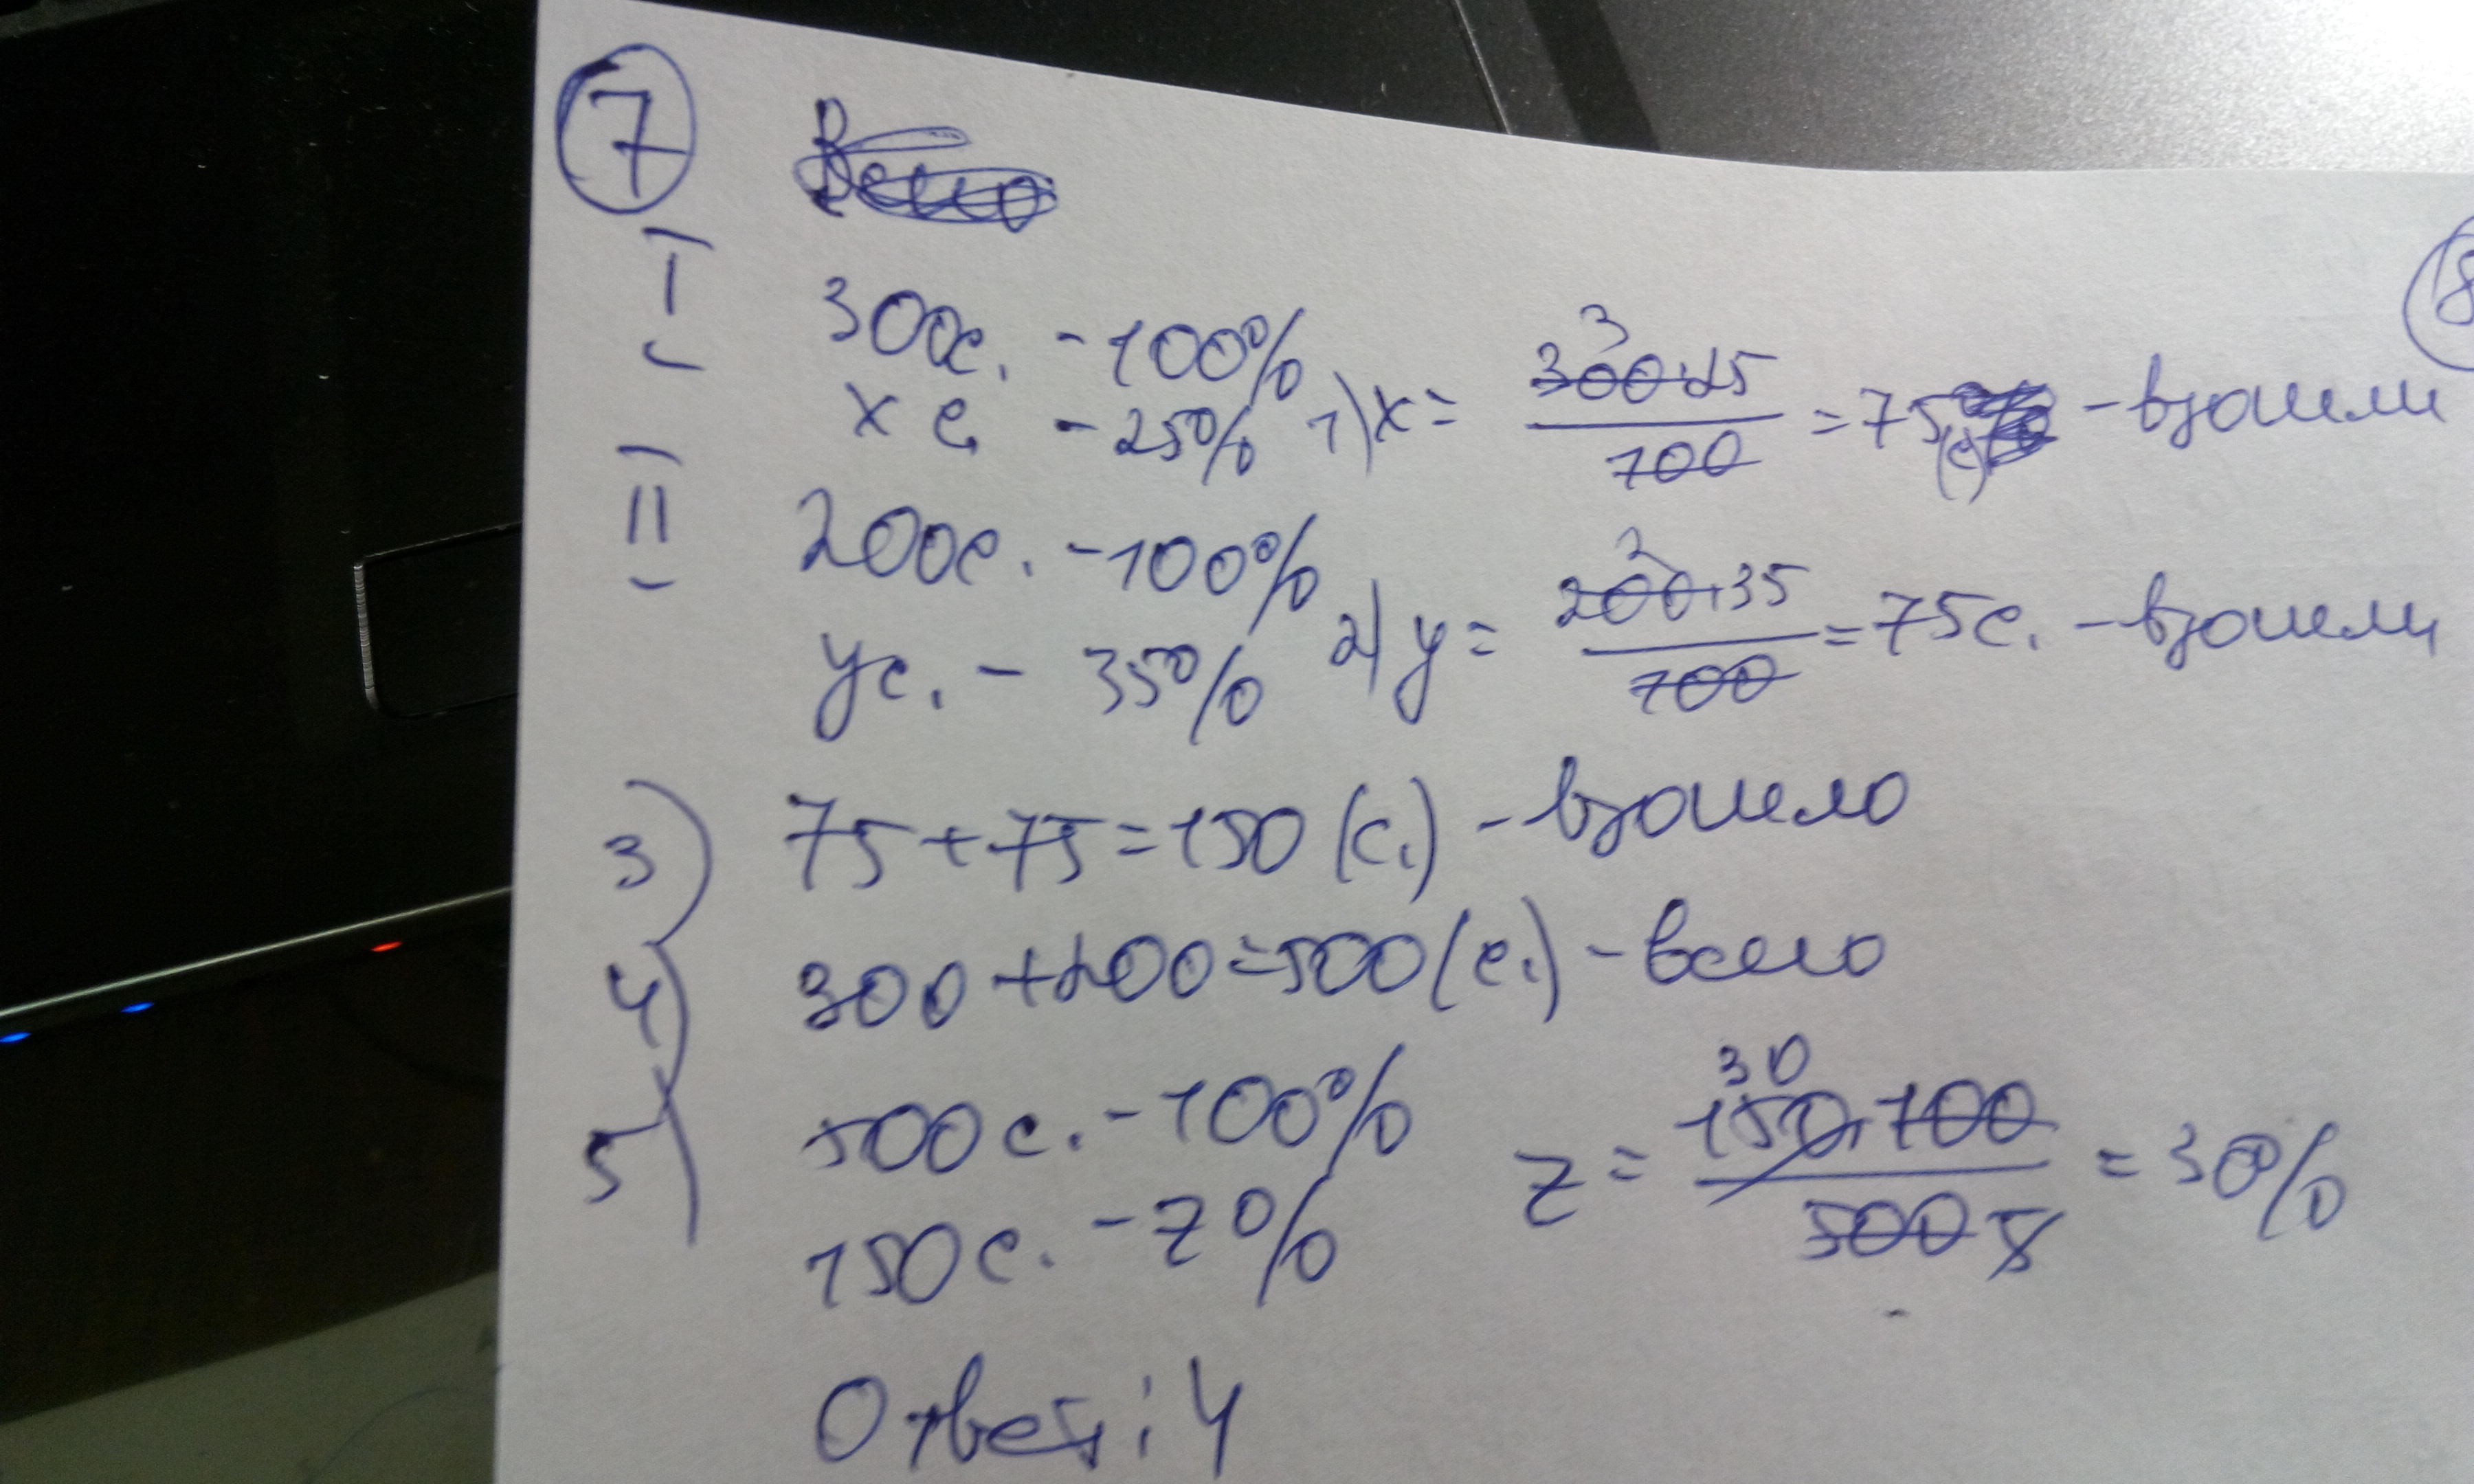 7 Всего
I 300с. - 100%
х с. - 25% 1) х = 300·25 / 100 = 75 (с) - взошли
II 200с. - 100%
у с. - 35% 2) у = 200·35 / 100 = 75с. - взошли
3) 75 + 75 = 150 (с.) - взошло
4) 300 + 200 = 500 (с.) - всего
5) 500 с. - 100%
150 с. - z% z = 150·100 / 500 5 = 30%
30
Ответ: 4
8